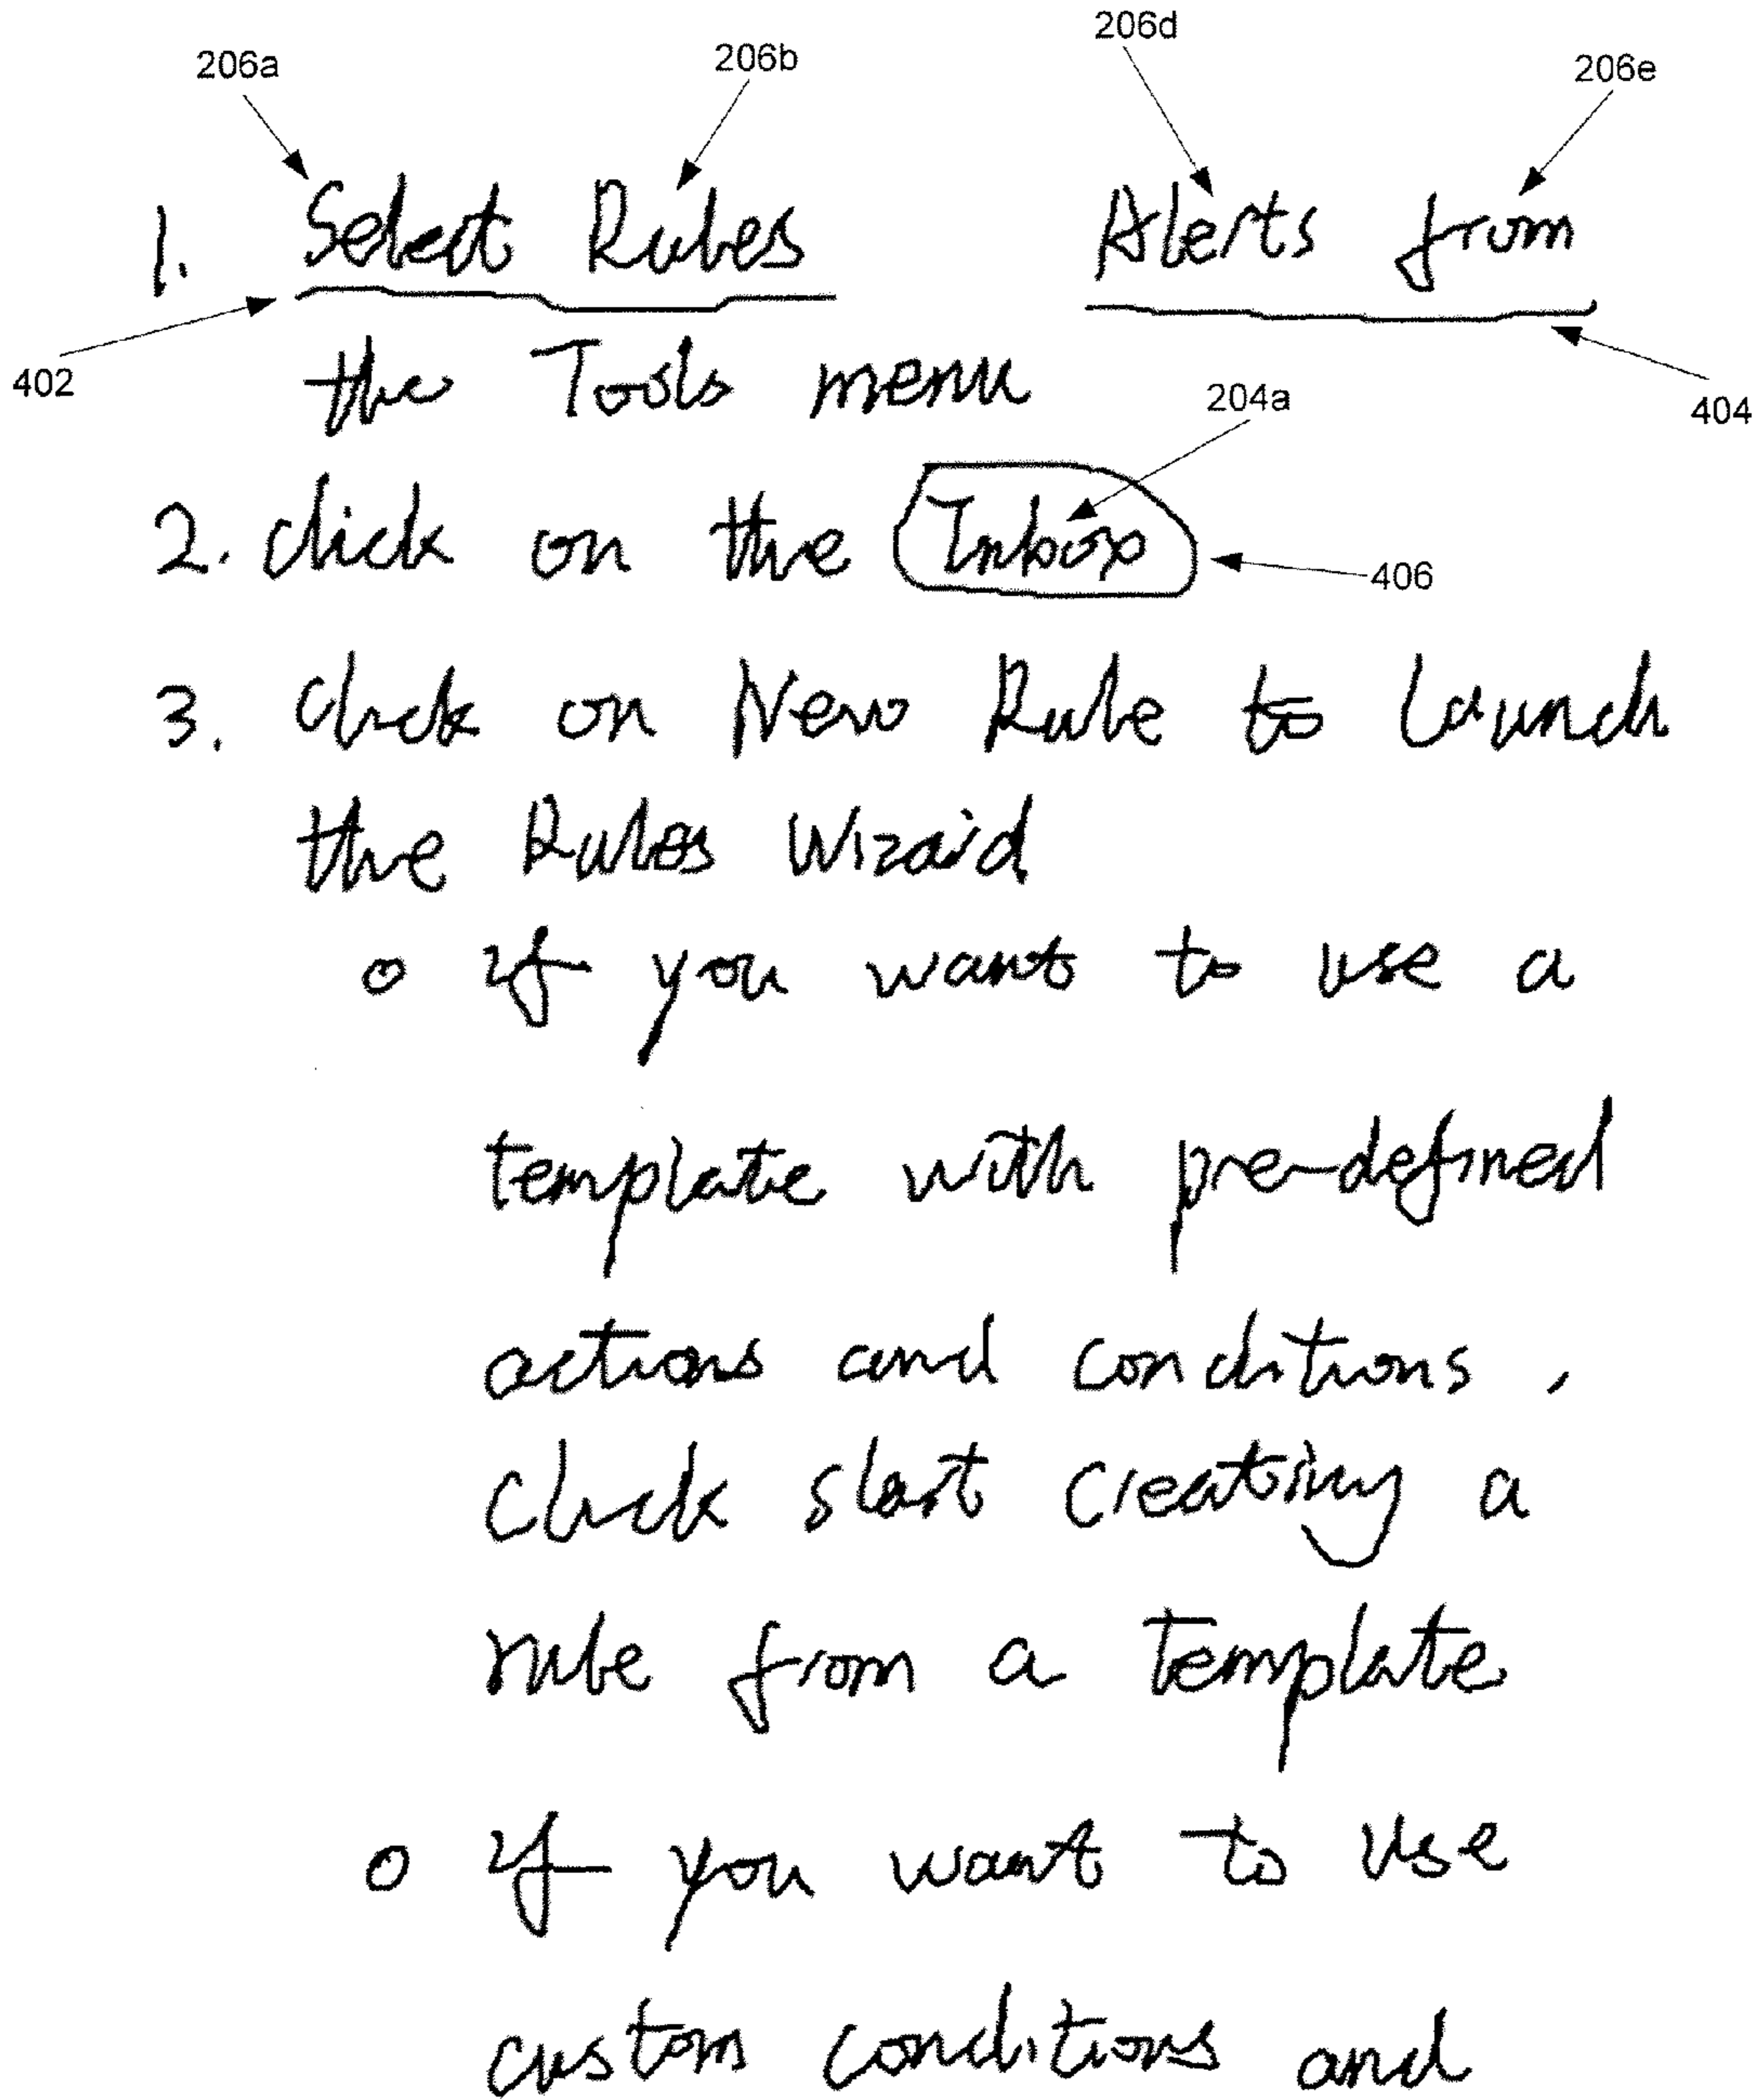 206a 206b 206d 206e
1. Select Rules Alerts from
402 404
the Tools menu
204a
2. click on the Inbox
406
3. click on New Rule to launch
the Rules Wizard
o if you want to use a
template with pre-defined
actions and conditions,
click start creating a
rule from a template
o if you want to use
custom conditions and